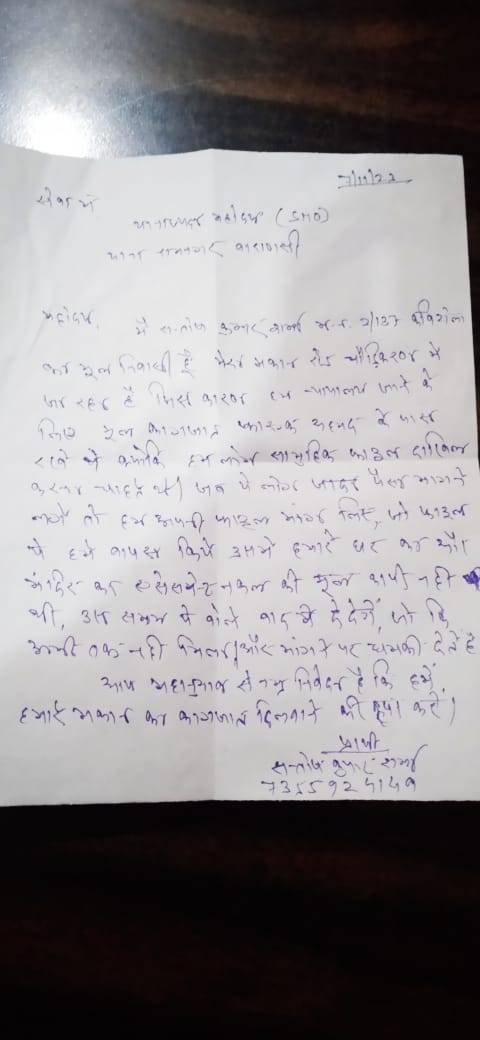 7/11/22
सेवा में
थानाध्यक्ष महोदय (SHO)
थाना रामनगर वाराणसी
महोदय,
मै सन्तोष कुमार शर्मा म.न. 2/137
का मूल निवासी हूँ मेरा मकान रोड चौड़िकरण मे
जा रहा है जिस कारण हम न्यायालय जाने के
लिए मूल कागजात अहमद के पास
रखे थे क्योकि हम लोग सामुहिक फाइल दाखिल
करना चाहते थे। जब ये लोग जादा पैसा मांगने
लगे तो हम अपनी फाइल मांग लिए, जो फाइल
ये हमे वापस किये उसमे हमारे घर का और
मंदिर का नकल की मूल कापी नही
थी, उस समय ये बोले बाद मे दे देगें, जो कि
अभी तक नही मिला। और मांगने पर धमकी देते है
आप महानुभाव से नम्र निवेदन है कि हमें
हमारे मकान का कागजात दिलवाने की कृपा करें।
प्रार्थी
सन्तोष कुमार शर्मा